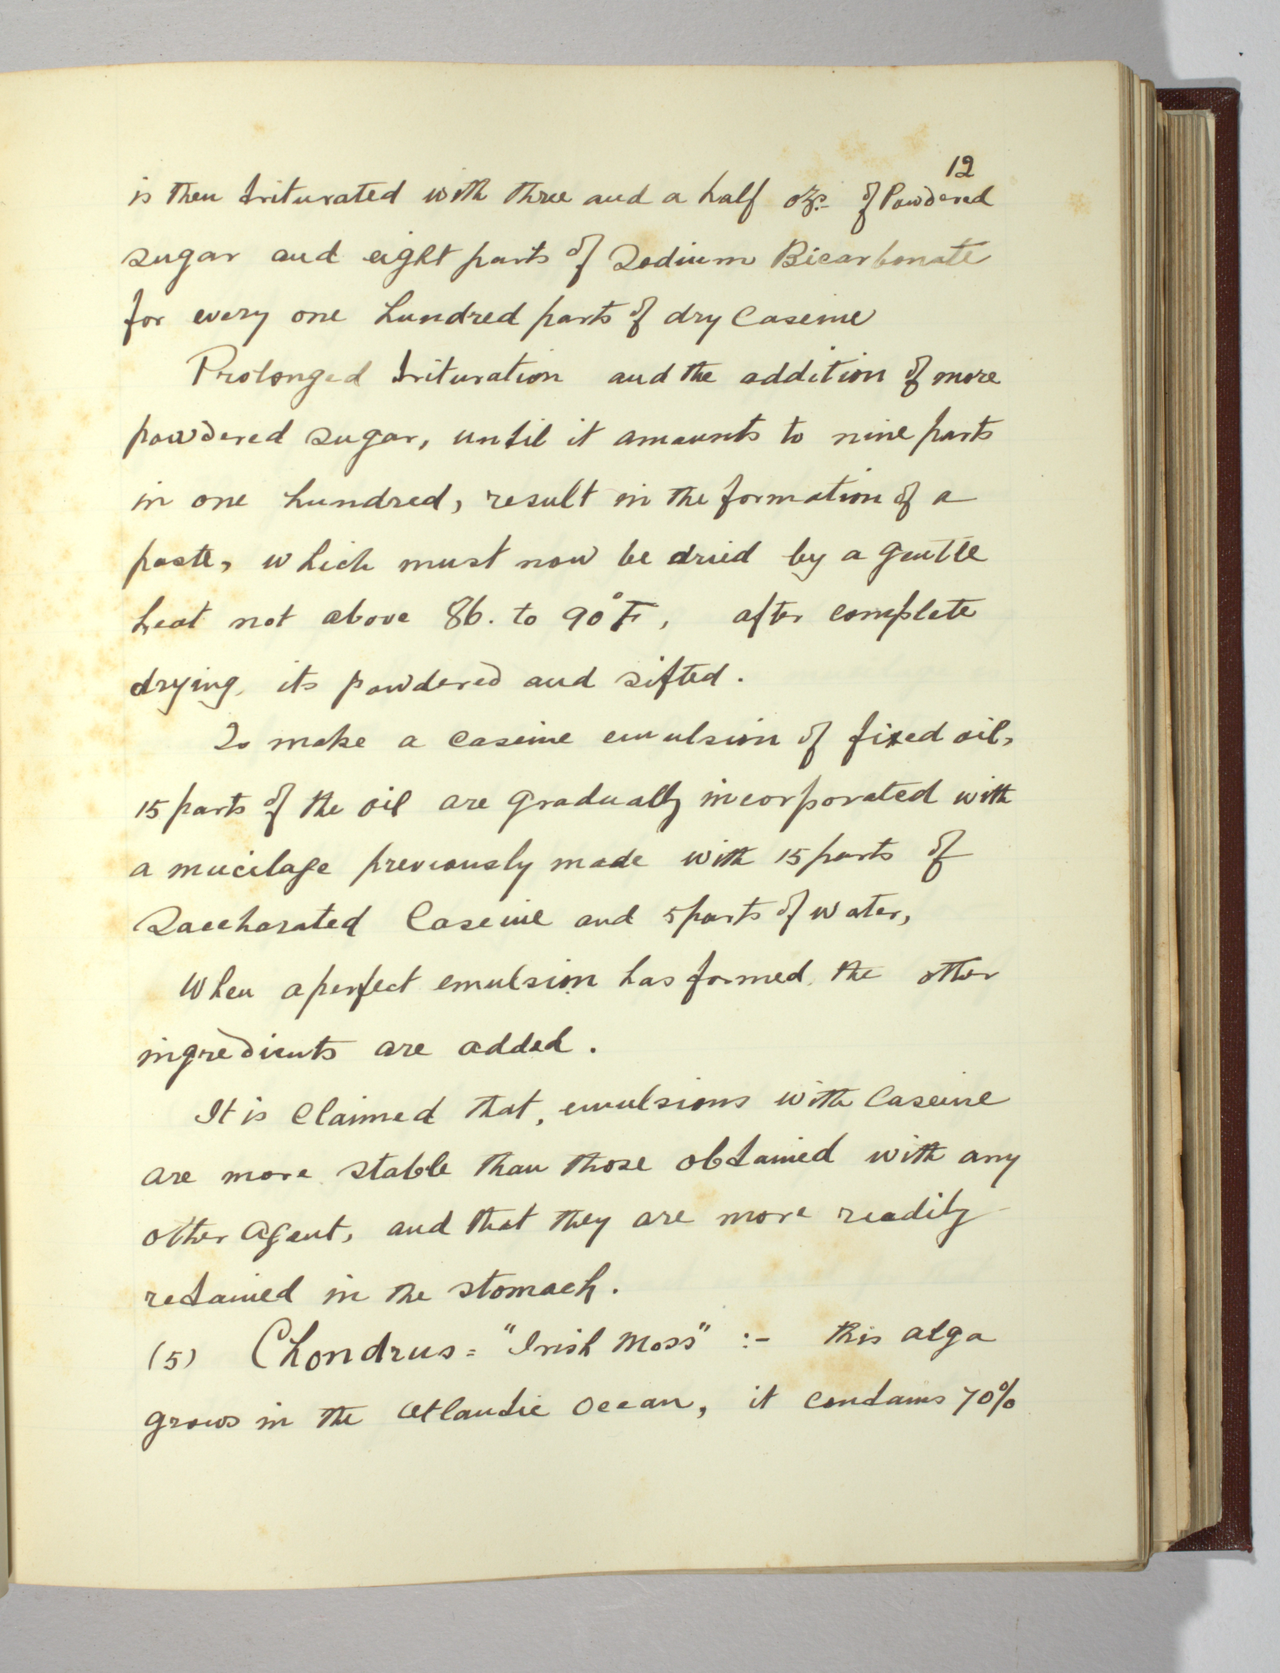 12
is then triturated with three and a half ozs. of Powdered
sugar and eight parts of Sodium Bicarbonate
for every one hundred parts of dry Caseine
Prolonged trituration and the addition of more
powdered sugar, until it amounts to nine parts
in one hundred, result in the formation of a
paste, which must now be dried by a gentle
heat not above 86. to 90°F, after complete
drying, its powdered and sifted.
To make a caseine emulsion of fixed oil,
15 parts of the oil are gradually incorporated with
a mucilage previously made with 15 parts of
Saccharated Caseine and 5 parts of water,
When a perfect emulsion has formed, the other
ingredients are added.
It is claimed that, emulsions with Caseine
are more stable than those obtained with any
other agent, and that they are more readily
retained in the stomach.
(5) Chondrus = "Irish Moss" :- this alga
grows in the Atlantic Ocean, it contains 70%